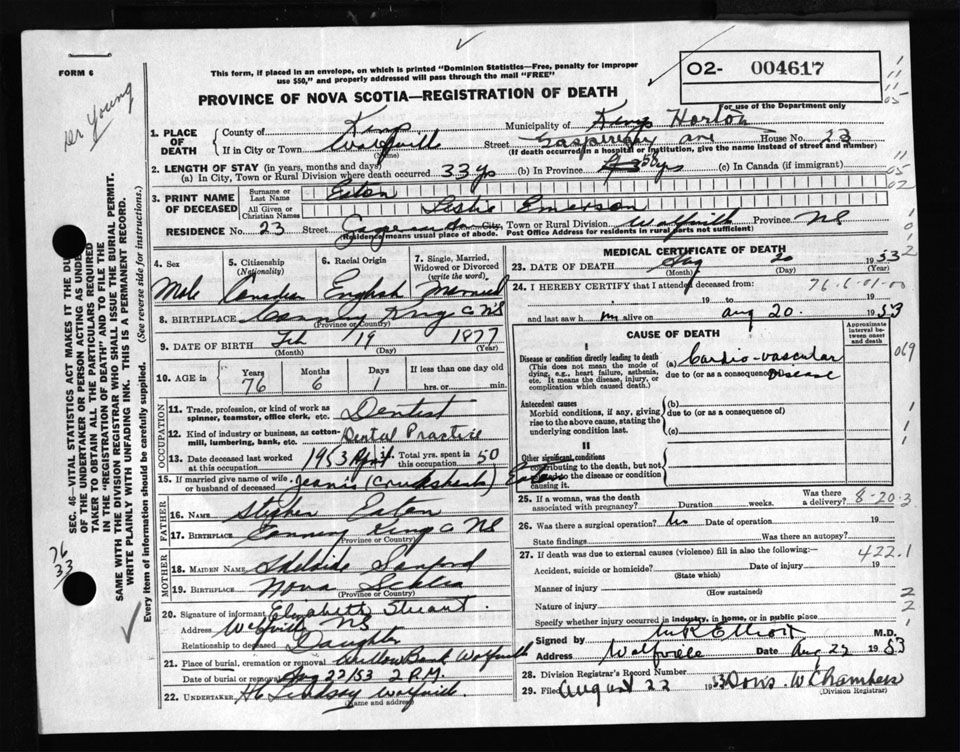 FORM 6
Dr Young
This form, if placed in an envelope, on which is printed "Dominion Statistics—Free, penalty for improper
use $50," and properly addressed will pass through the mail "FREE"
02- 004617
PROVINCE OF NOVA SCOTIA—REGISTRATION OF DEATH
For use of the Department only
1. PLACE OF DEATH
County of Kings Municipality of Kings Horton
If in City or Town Wolfville (Name) Street Gaspereau Ave House No. 23
(If death occurred in a hospital or institution, give the name instead of street and number)
2. LENGTH OF STAY (in years, months and days)
(a) In City, Town or Rural Division where death occurred 33 ys (b) In Province ys (c) In Canada (if immigrant)
3. PRINT NAME OF DECEASED
Surname or Last Name Eaton
All Given or Christian Names Leslie Emerson
RESIDENCE No. 23 Street City, Town or Rural Division Wolfville Province NS
(Residence means usual place of abode. Post Office Address for residents in rural parts not sufficient)
4. Sex Male
5. Citizenship (Nationality) Canadian
6. Racial Origin English
7. Single, Married, Widowed or Divorced (write the word) Married
8. BIRTHPLACE Canning Kings Co NS
(Province or Country)
9. DATE OF BIRTH Feb (Month) 19 (Day) 1877 (Year)
10. AGE in Years 76 Months 6 Days 1 If less than one day old hrs. or min.
OCCUPATION
11. Trade, profession, or kind of work as spinner, teamster, office clerk, etc. Dentist
12. Kind of industry or business, as cotton-mill, lumbering, bank, etc. Dental Practice
13. Date deceased last worked at this occupation 1953 April Total yrs. spent in this occupation 50
15. If married give name of wife or husband of deceased Jeanie (Cruikshank) Eaton
FATHER
16. NAME Stephen Eaton
17. BIRTHPLACE Canning Kings Co NS
(Province or Country)
MOTHER
18. MAIDEN NAME Adelaide Sanford
19. BIRTHPLACE Nova Scotia
(Province or Country)
20. Signature of informant Elizabeth Stewart
Address Wolfville NS
Relationship to deceased Daughter
21. Place of burial, cremation or removal Willow Bank Wolfville
Date of burial or removal Aug 22/53 2 P.M.
22. UNDERTAKER Lindsay Wolfville
(Name and address)
MEDICAL CERTIFICATE OF DEATH
23. DATE OF DEATH Aug (Month) 20 (Day) 1953 (Year)
24. I HEREBY CERTIFY that I attended deceased from: 76-6-01-00
, 19 to , 19
and last saw h im alive on Aug 20. 1953
CAUSE OF DEATH
Approximate interval between onset and death
I
Disease or condition directly leading to death
(This does not mean the mode of dying, e.g., heart failure, asthenia, etc. It means the disease, injury, or complication which caused death.)
(a) Cardio-vascular
due to (or as a consequence of) Disease
069
Antecedent causes
Morbid conditions, if any, giving rise to the above cause, stating the underlying condition last.
(b)
due to (or as a consequence of)
(c)
II
Other significant conditions contributing to the death, but not related to the disease or condition causing it.
25. If a woman, was the death associated with pregnancy? Duration weeks. Was there a delivery? 8-20-3
26. Was there a surgical operation? No Date of operation 19
State findings Was there an autopsy?
27. If death was due to external causes (violence) fill in also the following:— 422.1
Accident, suicide or homicide? (State which) Date of injury 19
Manner of injury (How sustained)
Nature of injury
Specify whether injury occurred in industry, in home, or in public place
Signed by Elliott M.D.
Address Wolfville Date Aug 22 1953
28. Division Registrar's Record Number
29. Filed August 22 1953 Doris W Chambers
(Division Registrar)
SEC. 46—VITAL STATISTICS ACT MAKES IT THE DUTY
OF THE UNDERTAKER OR PERSON ACTING AS UNDER-
TAKER TO OBTAIN ALL THE PARTICULARS REQUIRED
IN THE "REGISTRATION OF DEATH" AND TO FILE THE
SAME WITH THE DIVISION REGISTRAR WHO SHALL ISSUE THE BURIAL PERMIT.
WRITE PLAINLY WITH UNFADING INK. THIS IS A PERMANENT RECORD.
Every item of information should be carefully supplied. (See reverse side for instructions.)
76
33